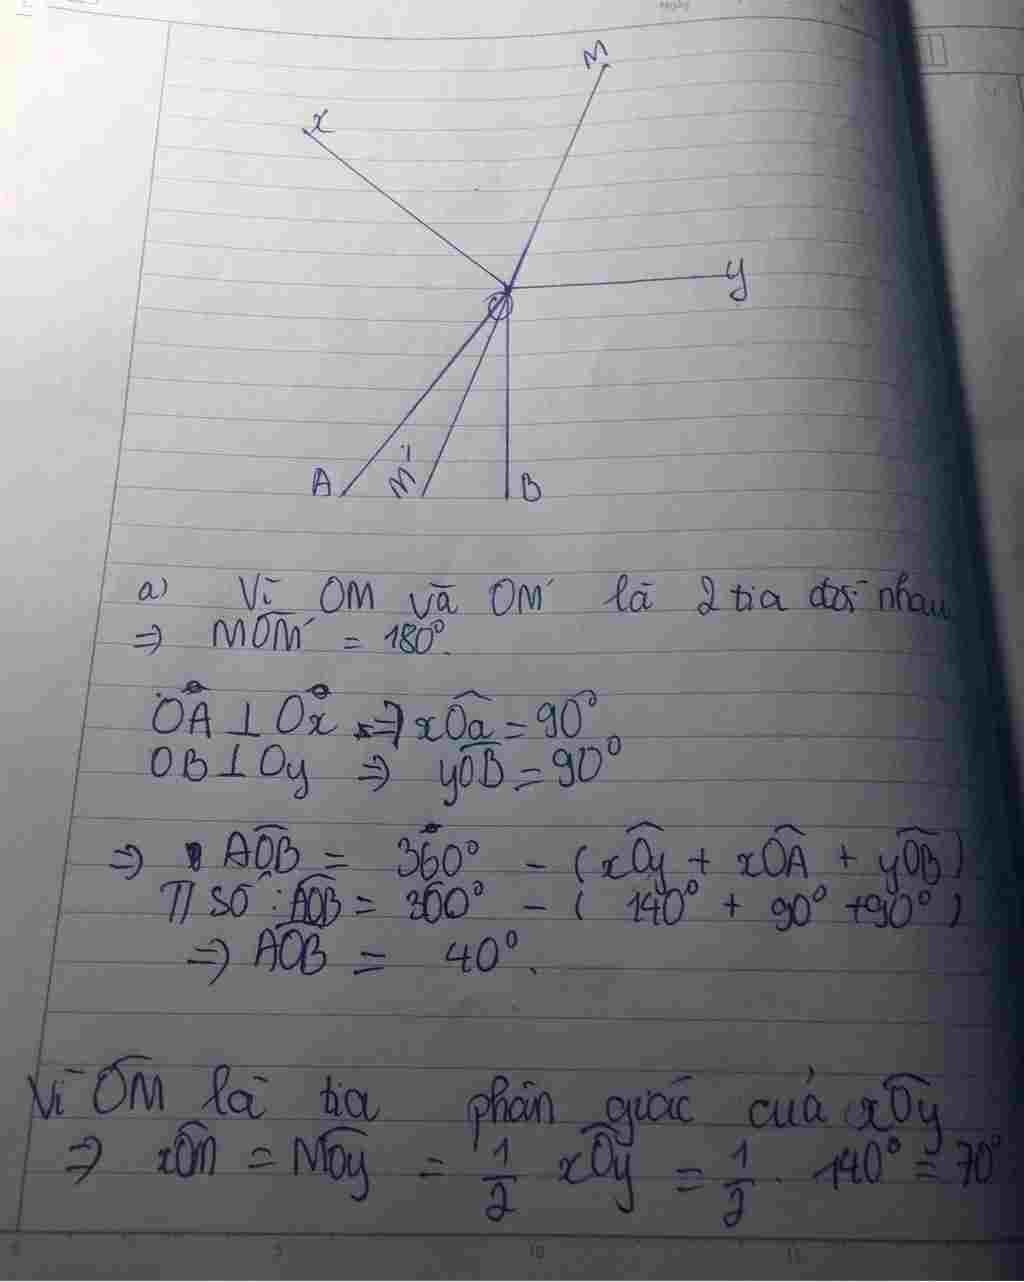 M
x
y
O
A
M'
B
a) Vì OM và OM' là 2 tia đối nhau
=> MOM' = 180°.
OA ⊥ Ox => xOa = 90°
OB ⊥ Oy => yOB = 90°
=> AOB = 360° - ( xOy + xOA + yOB )
T/ số : AOB = 360° - ( 140° + 90° + 90° )
=> AOB = 40°.
Vì OM là tia phân giác của xOy
=> xOm = MOy = 1/2 xOy = 1/2 . 140° = 70°
0 5 10 15